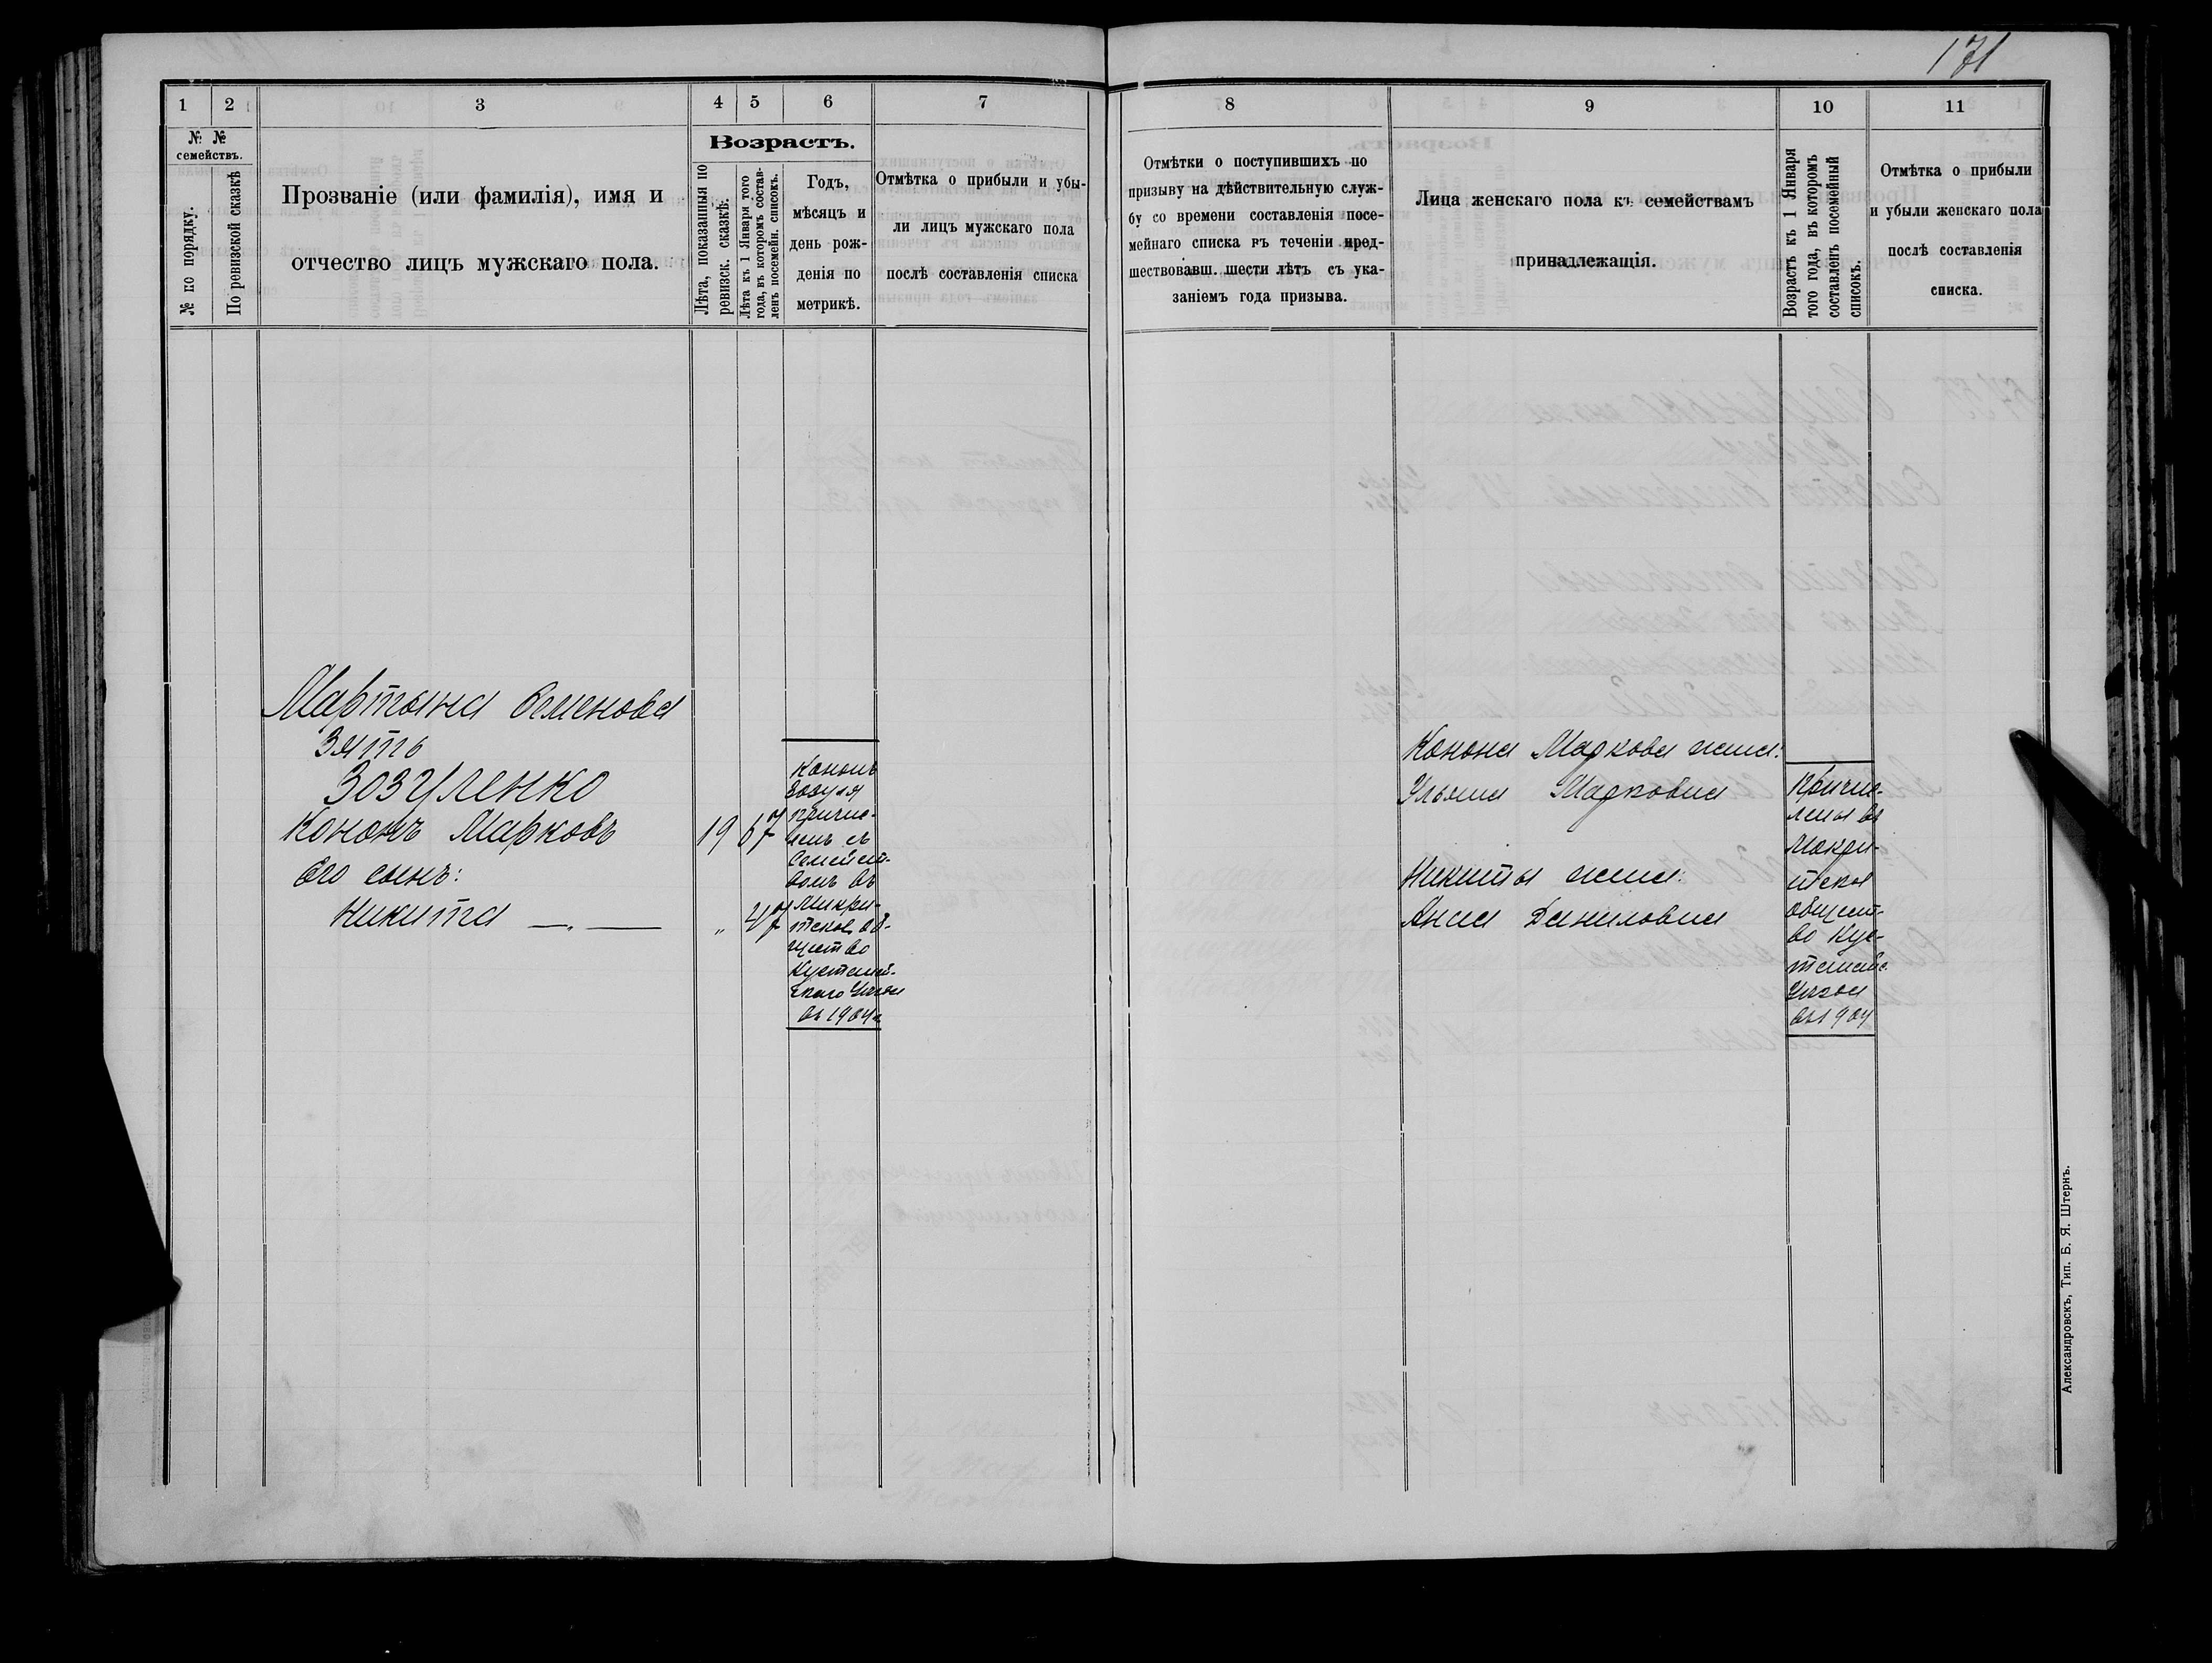 171
1 2 3 4 5 6 7
№ №
семействъ.
№ по порядку.
По ревизской сказкѣ
Прозваніе (или фамилія), имя и
отчество лицъ мужскаго пола.
Возрастъ.
Лѣта, показанныя по
ревизск. сказкѣ.
Лѣта къ 1 Января того
года, въ которомъ состав-
ленъ посемейн. списокъ.
Годъ,
мѣсяцъ и
день рож-
денія по
метрикѣ.
Отмѣтка о прибыли и убы-
ли лицъ мужскаго пола
послѣ составленія списка
Мартына Семенова
Зять
Зозуленко
Кононъ Марковъ 19 67
Его сынъ:
Никита — „ — „ 47
Кононъ
Зозуля
причис-
ленъ съ
Семейст-
вомъ въ
общество
Кустанай-
скаго Уѣзда
въ 1904 г.
8 9 10 11
Отмѣтки о поступившихъ по
призыву на дѣйствительную служ-
бу со времени составленія посе-
мейнаго списка въ теченіи пред-
шествовавш. шести лѣтъ съ ука-
заніемъ года призыва.
Лица женскаго пола къ семействамъ
принадлежащія.
Возрастъ къ 1 Января
того года, въ которомъ
составленъ посемейный
списокъ.
Отмѣтка о прибыли
и убыли женскаго пола
послѣ составленія
списка.
Конона Маркова жена:
Ульяна Марковна
Никиты жена:
Анна Даниловна
Причис-
лены въ
общест-
во Кус-
Уѣзда
въ 1904
Александровскъ, Тип. Б. Я. Штернъ.